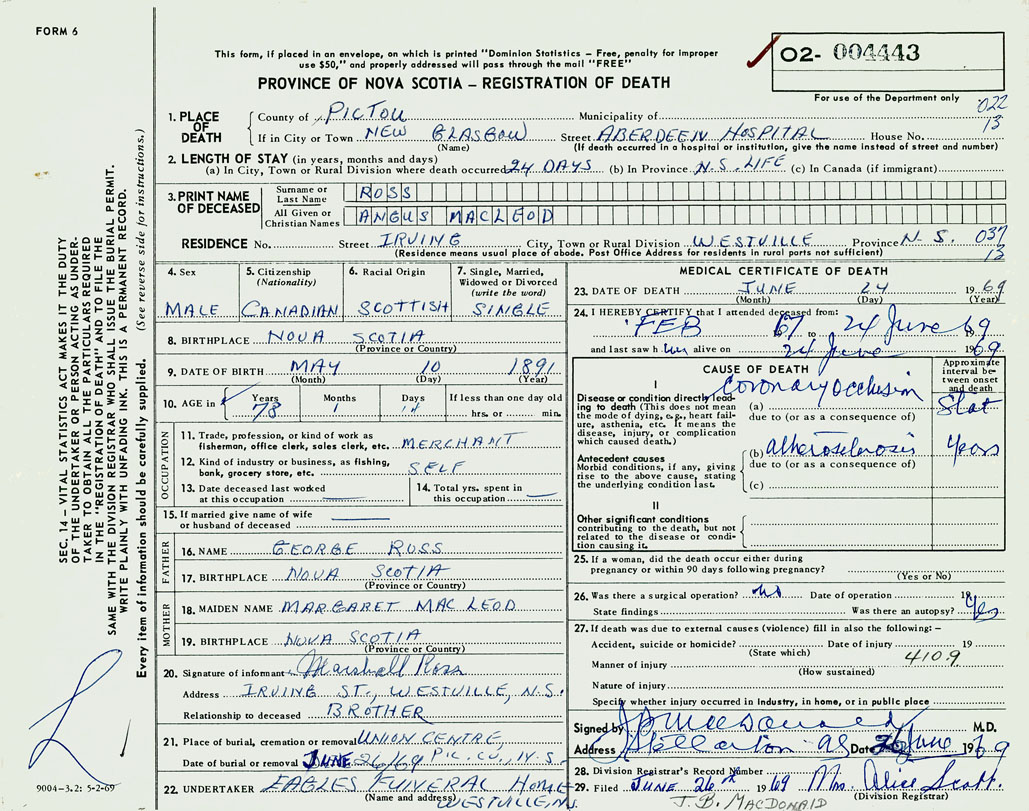 FORM 6
This form, if placed in an envelope, on which is printed "Dominion Statistics – Free, penalty for improper
use $50," and properly addressed will pass through the mail "FREE"
PROVINCE OF NOVA SCOTIA – REGISTRATION OF DEATH
O2- 004443
For use of the Department only
022
13
1. PLACE OF DEATH
County of PICTOU Municipality of
If in City or Town NEW GLASGOW Street ABERDEEN HOSPITAL House No.
(Name) (If death occurred in a hospital or institution, give the name instead of street and number)
2. LENGTH OF STAY (in years, months and days)
(a) In City, Town or Rural Division where death occurred 24 DAYS (b) In Province N.S. LIFE (c) In Canada (if immigrant)
3. PRINT NAME OF DECEASED
Surname or Last Name ROSS
All Given or Christian Names ANGUS MACLEOD
RESIDENCE No. Street IRVING City, Town or Rural Division WESTVILLE Province N.S. 037
(Residence means usual place of abode. Post Office Address for residents in rural parts not sufficient) 13
4. Sex
MALE
5. Citizenship (Nationality)
CANADIAN
6. Racial Origin
SCOTTISH
7. Single, Married, Widowed or Divorced (write the word)
SINGLE
8. BIRTHPLACE NOVA SCOTIA
(Province or Country)
9. DATE OF BIRTH MAY 10 1891
(Month) (Day) (Year)
10. AGE in Years Months Days If less than one day old
78 1 14 hrs. or min.
OCCUPATION
11. Trade, profession, or kind of work as
fisherman, office clerk, sales clerk, etc. MERCHANT
12. Kind of industry or business, as fishing,
bank, grocery store, etc. SELF
13. Date deceased last worked
at this occupation
14. Total yrs. spent in
this occupation
15. If married give name of wife
or husband of deceased
FATHER
16. NAME GEORGE ROSS
17. BIRTHPLACE NOVA SCOTIA
(Province or Country)
MOTHER
18. MAIDEN NAME MARGARET MAC LEOD
19. BIRTHPLACE NOVA SCOTIA
(Province or Country)
20. Signature of informant Marshall Ross
Address IRVING ST., WESTVILLE, N.S.
Relationship to deceased BROTHER
21. Place of burial, cremation or removal UNION CENTRE,
Date of burial or removal JUNE 26/69 PIC. CO., N.S.
22. UNDERTAKER EAGLES FUNERAL HOME
(Name and address) WESTVILLE, N.S.
MEDICAL CERTIFICATE OF DEATH
23. DATE OF DEATH JUNE 24 1969
(Month) (Day) (Year)
24. I HEREBY CERTIFY that I attended deceased from:
FEB 67 to 24 June 69
and last saw him alive on 24 June 1969
CAUSE OF DEATH
Approximate interval between onset and death
I
Disease or condition directly leading to death (This does not mean the mode of dying, e.g., heart failure, asthenia, etc. It means the disease, injury, or complication which caused death.)
(a) Coronary occlusion Stat
due to (or as a consequence of)
Antecedent causes
Morbid conditions, if any, giving rise to the above cause, stating the underlying condition last.
(b) atherosclerosis years
due to (or as a consequence of)
(c)
II
Other significant conditions
contributing to the death, but not related to the disease or condition causing it.
25. If a woman, did the death occur either during
pregnancy or within 90 days following pregnancy?
(Yes or No)
26. Was there a surgical operation? no Date of operation 19
State findings Was there an autopsy? Yes
27. If death was due to external causes (violence) fill in also the following: –
Accident, suicide or homicide? Date of injury 19
(State which) 410.9
Manner of injury
(How sustained)
Nature of injury
Specify whether injury occurred in industry, in home, or in public place
Signed by J B MacDonald M.D.
Address Stellarton NS Date 26 June 1969
28. Division Registrar's Record Number
29. Filed JUNE 26 1969 Mrs. Alice Scott.
(Division Registrar)
J. B. MACDONALD
SEC. 14 – VITAL STATISTICS ACT MAKES IT THE DUTY
OF THE UNDERTAKER OR PERSON ACTING AS UNDER-
TAKER TO OBTAIN ALL THE PARTICULARS REQUIRED
IN THE "REGISTRATION OF DEATH" AND TO FILE THE
SAME WITH THE DIVISION REGISTRAR WHO SHALL ISSUE THE BURIAL PERMIT.
WRITE PLAINLY WITH UNFADING INK. THIS IS A PERMANENT RECORD.
Every item of information should be carefully supplied. (See reverse side for instructions.)
9004–3.2: 5-2-69